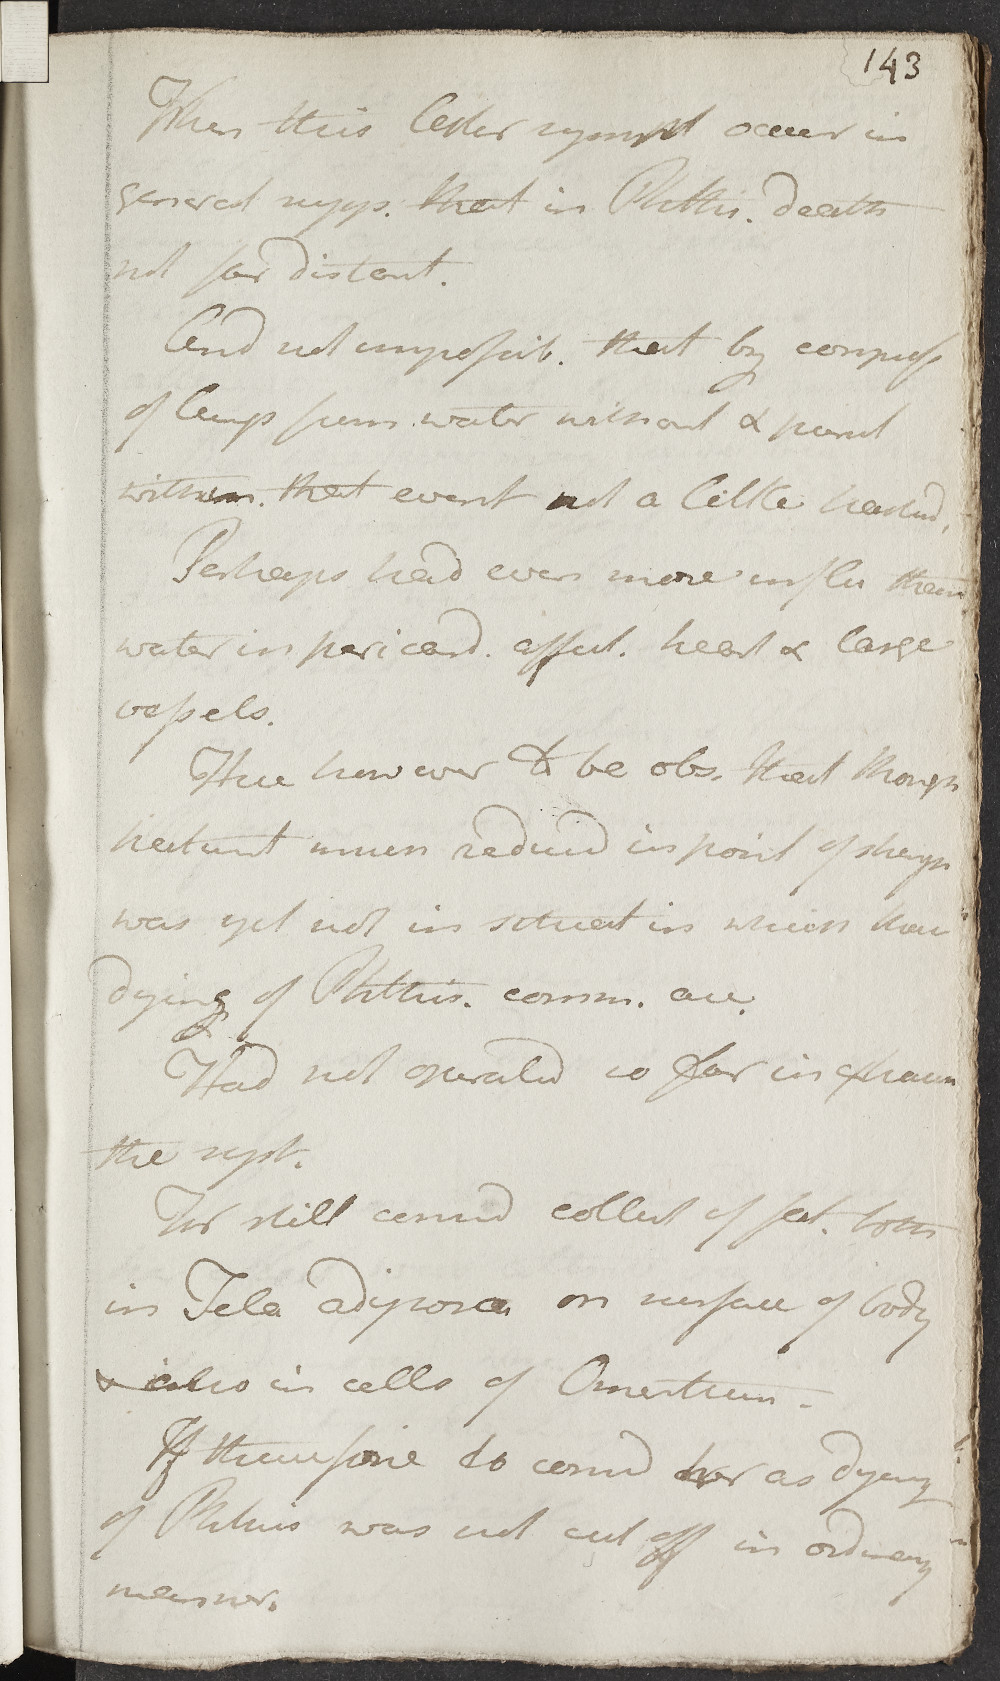 143
When this latter sympt occur in
general supp. that in Phthis. death
not far distant.
And not impossib. that by compress
of lungs from water without & purul
within. that event not a little hastend.
Perhaps had even more influ than
water in pericard. affect. heart & large
vessels.
Here however to be obs. that though
patient much reduced in point of strength
was yet not in situat in which those
dying of Phthis. comm. are.
Had not operated so far in exhaus
the syst.
For still consid collect of fat. both
in Tela adiposa on surface of body
& also in cells of Omentum.
If therefore to consid her as dying
of Phthisis was not cut off in ordinary
manner.